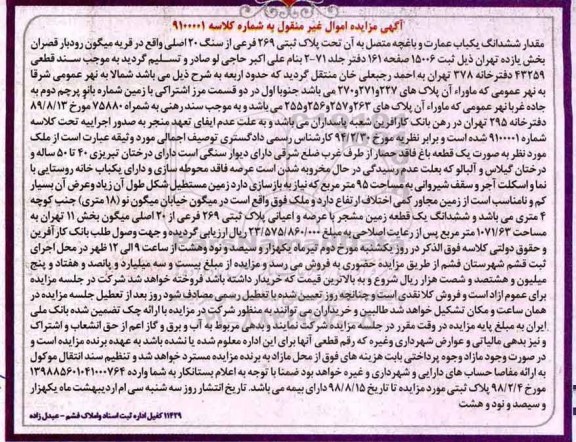 آگهی مزایده اموال غیر منقول به شماره کلاسه ۹۱۰۰۰۰۱
مقدار ششدانگ یکباب عمارت و باغچه متصل به آن تحت پلاک ثبتی ۲۶۹ فرعی از سنگ ۲۰ اصلی واقع در قریه میگون رودبار قصران
بخش یازده تهران ذیل ثبت ۱۵۰۰۶ صفحه ۱۶۱ دفتر جلد ۷۱-۲ بنام علی اکبر حاجی لو صادر و تسلیم گردید به موجب سند قطعی
۴۳۲۵۹ دفترخانه ۳۷۸ تهران به احمد رجبعلی خان منتقل گردید که حدود اربعه به شرح ذیل می باشد شمالا به نهر عمومی شرقا
به نهر عمومی که ماوراء آن پلاک های ۲۲۷و۲۷۱و۲۷۰ می باشد جنوبا اول در دو قسمت مرز اشتراکی با زمین شماره بانو پرچم دوم به
جاده غربا نهر عمومی که ماوراء آن پلاک های ۲۶۳و۲۵۷و۲۵۶و۲۵۵ می باشد و به موجب سند رهنی به شماره ۷۵۸۸۰ مورخ ۸۹/۸/۱۳
دفترخانه ۲۹۵ تهران در رهن بانک کارآفرین شعبه پاسداران می باشد و به علت عدم ایفای تعهد منجر به صدور اجراییه تحت کلاسه
شماره ۹۱۰۰۰۰۱ شده است و برابر نظریه مورخ ۹۴/۲/۳۰ کارشناس رسمی دادگستری توصیف اجمالی مورد وثیقه عبارت است از ملک
مورد نظر به صورت یک قطعه باغ فاقد حصار از طرف غرب ضلع شرقی دارای دیوار سنگی است دارای درختان تبریزی ۴۰ تا ۵۰ ساله و
درختان گیلاس و آلبالو که بعلت عدم رسیدگی در حال مخروبه شدن است عرصه فاقد محوطه سازی و دارای یکباب خانه روستایی با
نما و اسکلت آجر و سقف شیروانی به مساحت ۹۵ متر مربع که نیاز به بازسازی دارد زمین مستطیل شکل طول آن زیاد وعرض آن بسیار
کم و نامناسب است از زمین مجاور کمی اختلاف ارتفاع دارد و ملک فوق واقع است در میگون خیابان میگون نو (۱۸ متری) جنب کوچه
۴ متری می باشد و ششدانگ یک قطعه زمین مشجر با عرصه و اعیانی پلاک ثبتی ۲۶۹ فرعی از ۲۰ اصلی میگون بخش ۱۱ تهران به
مساحت ۱۰۷۱/۶۳ متر مربع پس از رعایت اصلاحی به مبلغ ۲۳/۵۷۵/۸۶۰/۰۰۰ ریال ارزیابی گردیده و جهت وصول طلب بانک کارآفرین
و حقوق دولتی کلاسه فوق الذکر در روز یکشنبه مورخ دوم تیرماه یکهزار و سیصد و نود وهشت از ساعت ۹ الی ۱۲ ظهر در محل اجرای
ثبت قشم شهرستان فشم از طریق مزایده حضوری به فروش می رسد و مزایده از مبلغ بیست و سه میلیارد و پانصد و هفتاد و پنج
میلیون و هشتصد و شصت هزار ریال شروع و به بالاترین قیمت که خریدار داشته باشد فروخته خواهد شد شرکت در جلسه مزایده
برای عموم آزاد است و فروش کلا نقدی است و چنانچه روز تعیین شده با تعطیل رسمی مصادف شود روز بعد از تعطیل جلسه مزایده در
همان ساعت و مکان تشکیل خواهد شد طالبین و خریداران می توانند به منظور شرکت در مزایده با ارائه چک تضمین شده بانک ملی
ایران به مبلغ پایه مزایده در وقت مقرر در جلسه مزایده شرکت نمایند بدهی های مربوط به آب و برق و گاز اعم از حق انشعاب و اشتراک
و نیز بدهی مالیاتی و عوارض شهرداری وغیره که رقم قطعی آنها برای این اداره معلوم شده یا نشده باشد به عهده برنده مزایده است و
در صورت وجود مازاد وجوه پرداختی بابت هزینه های فوق از محل مازاد به برنده مزایده مسترد خواهد شد و تنظیم سند انتقال موکول
به ارائه مفاصا حساب های دارایی و شهرداری و غیره خواهد بود ضمنا با توجه به اعلام بستانکار به شما وارده ۱۳۹۸۸۵۶۰۱۰۴۱۰۰۰۷۶۴
مورخ ۹۸/۲/۴ پلاک ثبتی مورد مزایده تا تاریخ ۹۸/۸/۱۵ دارای بیمه می باشد. تاریخ انتشار روز سه شنبه سی ام اردیبهشت ماه یکهزار
و سیصد و نود و هشت
۱۱۴۲۹ کفیل اداره ثبت اسناد واملاک فشم - عبدل زاده